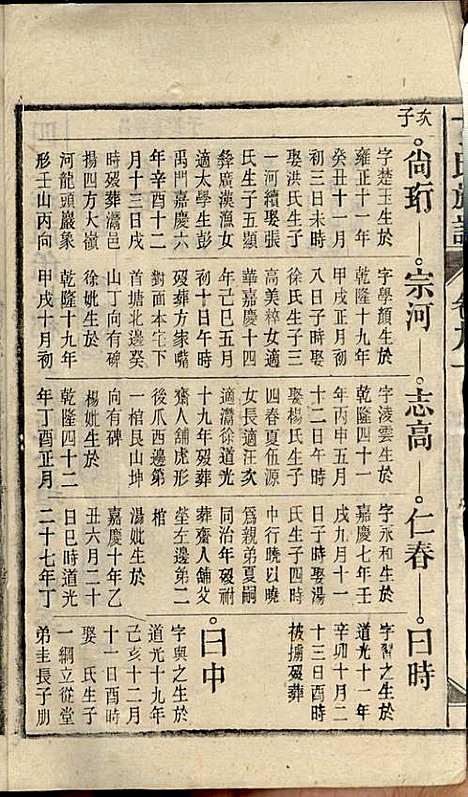 亥子
尙珩
字楚玉生於
雍正十一年
癸丑十一月
初三日未時
娶洪氏生子
一河續娶張
氏生子五顯
彝廣漢漁女
適太學生彭
禹門嘉慶六
年辛酉十二
月十三日戌
時歿葬㵮邑
揚四方大嶺
河龍頭巖象
形壬山丙向
宗河
字學顏生於
乾隆十九年
甲戌正月初
八日子時娶
徐氏生子三
高美粹女適
華嘉慶十四
年己巳五月
初十日午時
歿葬方家嘴
對面本宅下
首塘北邊癸
山丁向有碑
徐妣生於
乾隆十九年
甲戌十月初
志高
字淩雲生於
乾隆四十一
年丙申五月
十二日午時
娶楊氏生子
四春夏伍源
女長適汪次
適㵮徐道光
十九年歿葬
齋人舖虎形
後爪西邊第
一棺艮山坤
向有碑
楊妣生於
乾隆四十二
年丁酉正月
仁春
字永和生於
嘉慶七年壬
戌九月十一
日子時娶湯
氏生子四時
中行曉以曉
爲親弟夏嗣
同治年歿祔
葬齋人舖父
塋左邊第二
棺
湯妣生於
嘉慶十年乙
丑六月二十
日巳時道光
二十七年丁
日時
字習之生於
道光十一年
辛卯十月二
十三日酉時
被擄歿葬
日中
字與之生於
道光十九年
己亥十二月
十一日酉時
娶 氏生子
一綱立從堂
弟圭長子朋
氏族譜
卷九